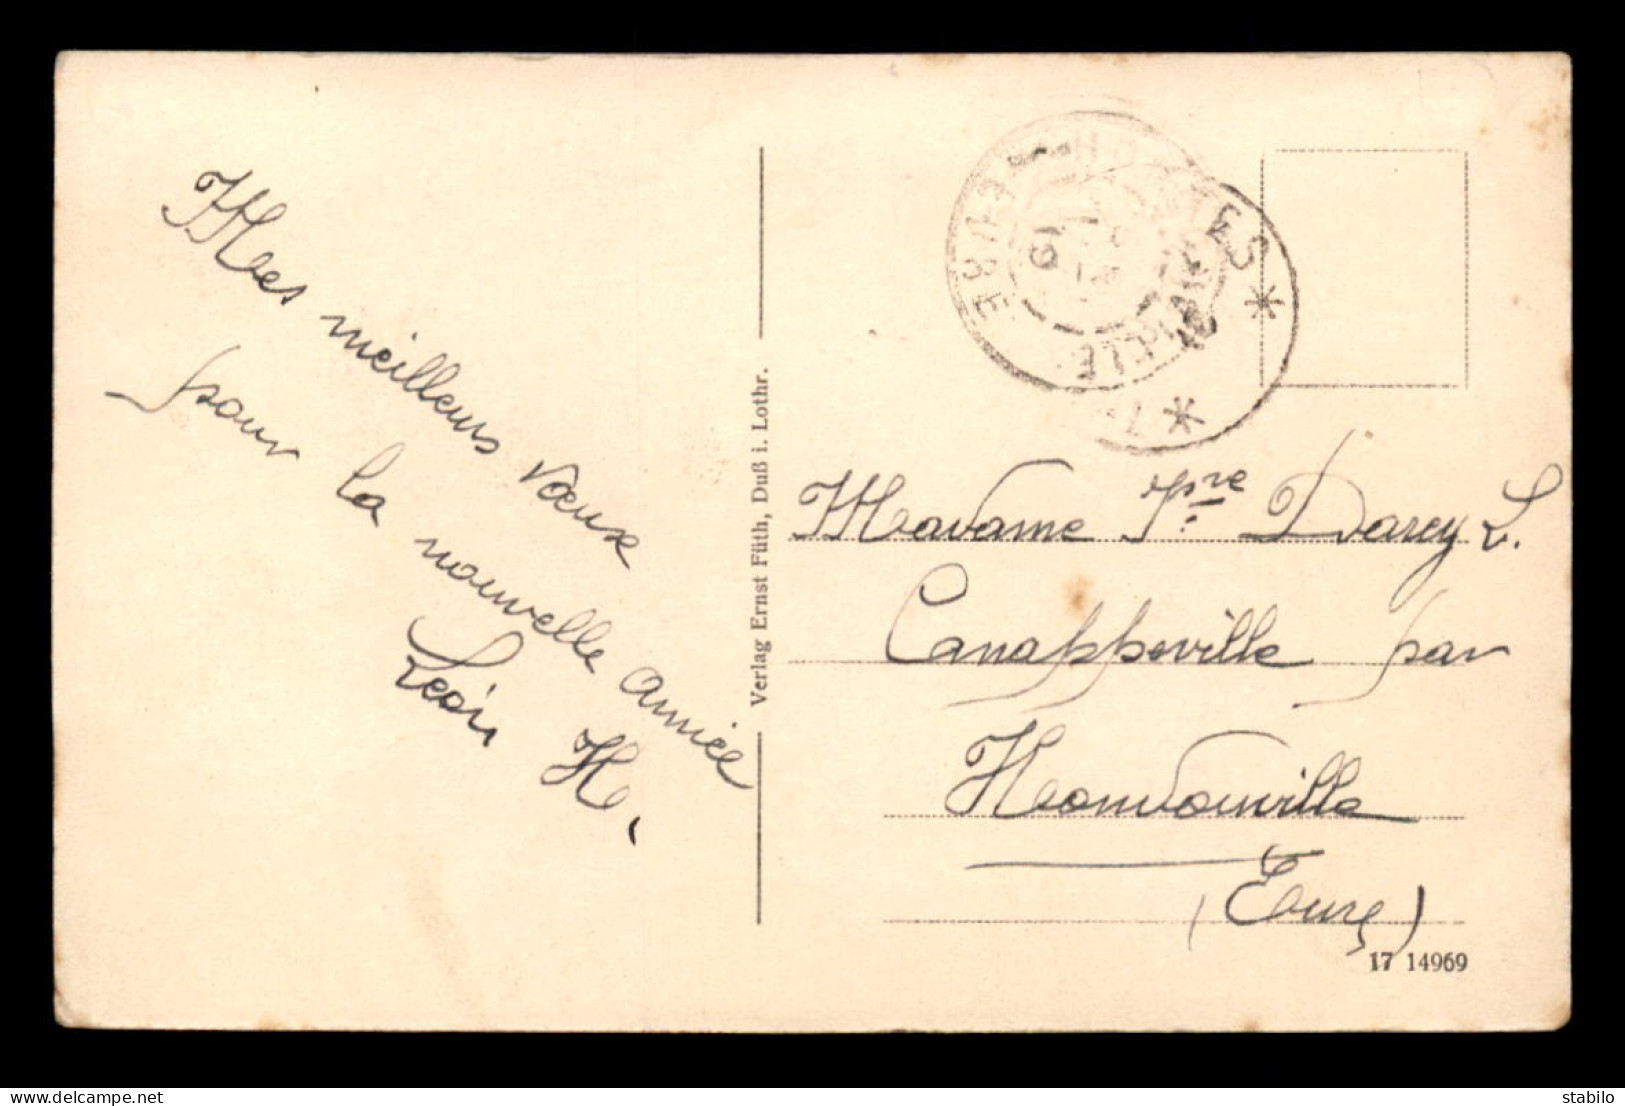 Mes meilleurs vœux
pour la nouvelle année
Léon H.
Verlag Ernst Füth, Duß i. Lothr.
POSTES
EURE
19
Madame Vve Darcy L.
Canappeville par
Hondouville
(Eure)
17 14969
www.delcampe.net
stabilo